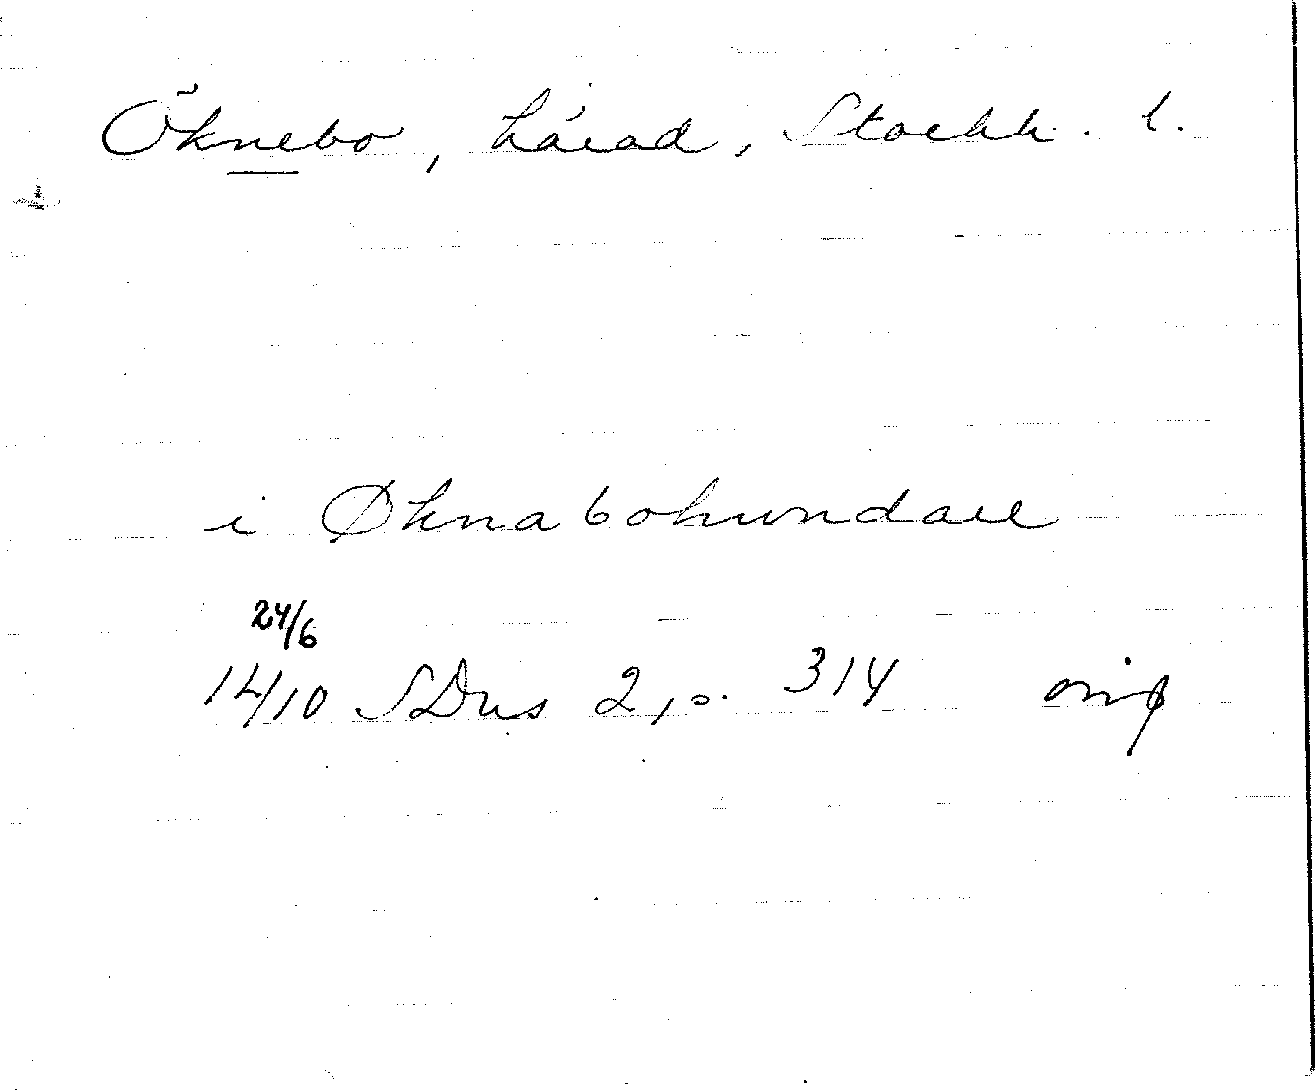 Öknebo, härad, Stockh. l.
i Øknabohundare
24/6
14/10 SDns 2, s. 314 orig